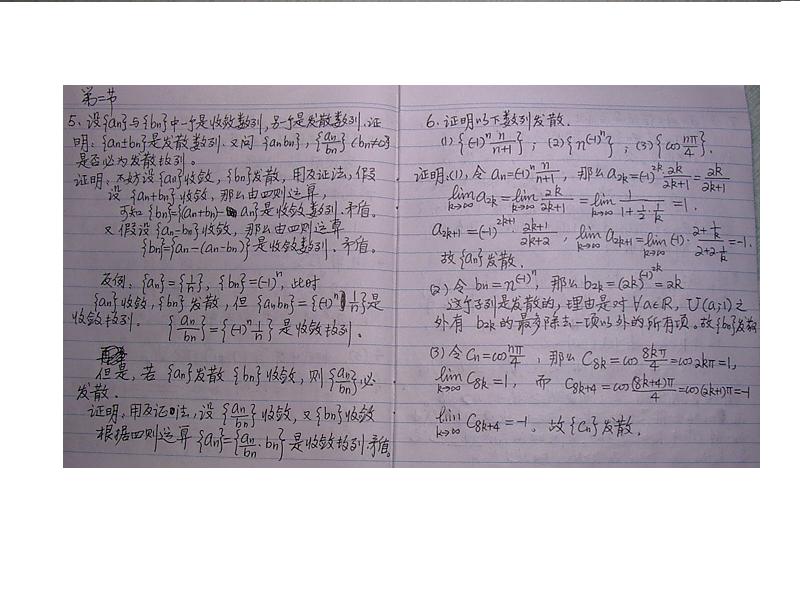 第二节
5、设{an}与{bn}中一个是收敛数列,另一个是发散数列.证
明:{an±bn}是发散数列.又问{anbn},{an/bn}(bn≠0)
是否必为发散数列。
证明:不妨设{an}收敛,{bn}发散,用反证法,假
设{an+bn}收敛,那么由四则运算,
可知{bn}={(an+bn)-an}是收敛数列.矛盾。
又假设{an-bn}收敛,那么由四则运算
{bn}={an-(an-bn)}是收敛数列.矛盾.
反例:{an}={1/n},{bn}=(-1)^n,此时
{an}收敛,{bn}发散,但{anbn}={(-1)^n 1/n}是
收敛数列. {an/bn}={(-1)^n 1/n}是收敛数列.
但是,若{an}发散{bn}收敛,则{an/bn}必
发散.
证明:用反证法,设{an/bn}收敛,又{bn}收敛
根据四则运算{an}={an/bn·bn}是收敛数列.矛盾。
6.证明以下数列发散.
(1){(-1)^n n/(n+1)};(2){n^(-1)^n};(3){cos nπ/4}.
证明:(1),令an=(-1)^n n/(n+1),那么a2k=(-1)^2k 2k/(2k+1)=2k/(2k+1)
lim k→∞ a2k=lim k→∞ 2k/(2k+1)=lim k→∞ 1/(1+1/2·1/k)=1.
a2k+1=(-1)^2k+1 (2k+1)/(2k+2),lim k→∞ a2k+1=lim k→∞ (-1)·(2+1/k)/(2+2·1/k)=-1.
故{an}发散.
(2)令bn=n^(-1)^n,那么b2k=(2k)^(-1)^2k=2k
这个子列是发散的,理由是对∀a∈R,U(a;1)之
外有b2k的最多除去一项以外的所有项。故{bn}发散
(3)令Cn=cos nπ/4,那么C8k=cos 8kπ/4=cos2kπ=1,
lim k→∞ C8k=1,而C8k+4=cos (8k+4)π/4=cos(2k+1)π=-1
lim k→∞ C8k+4=-1。故{Cn}发散.